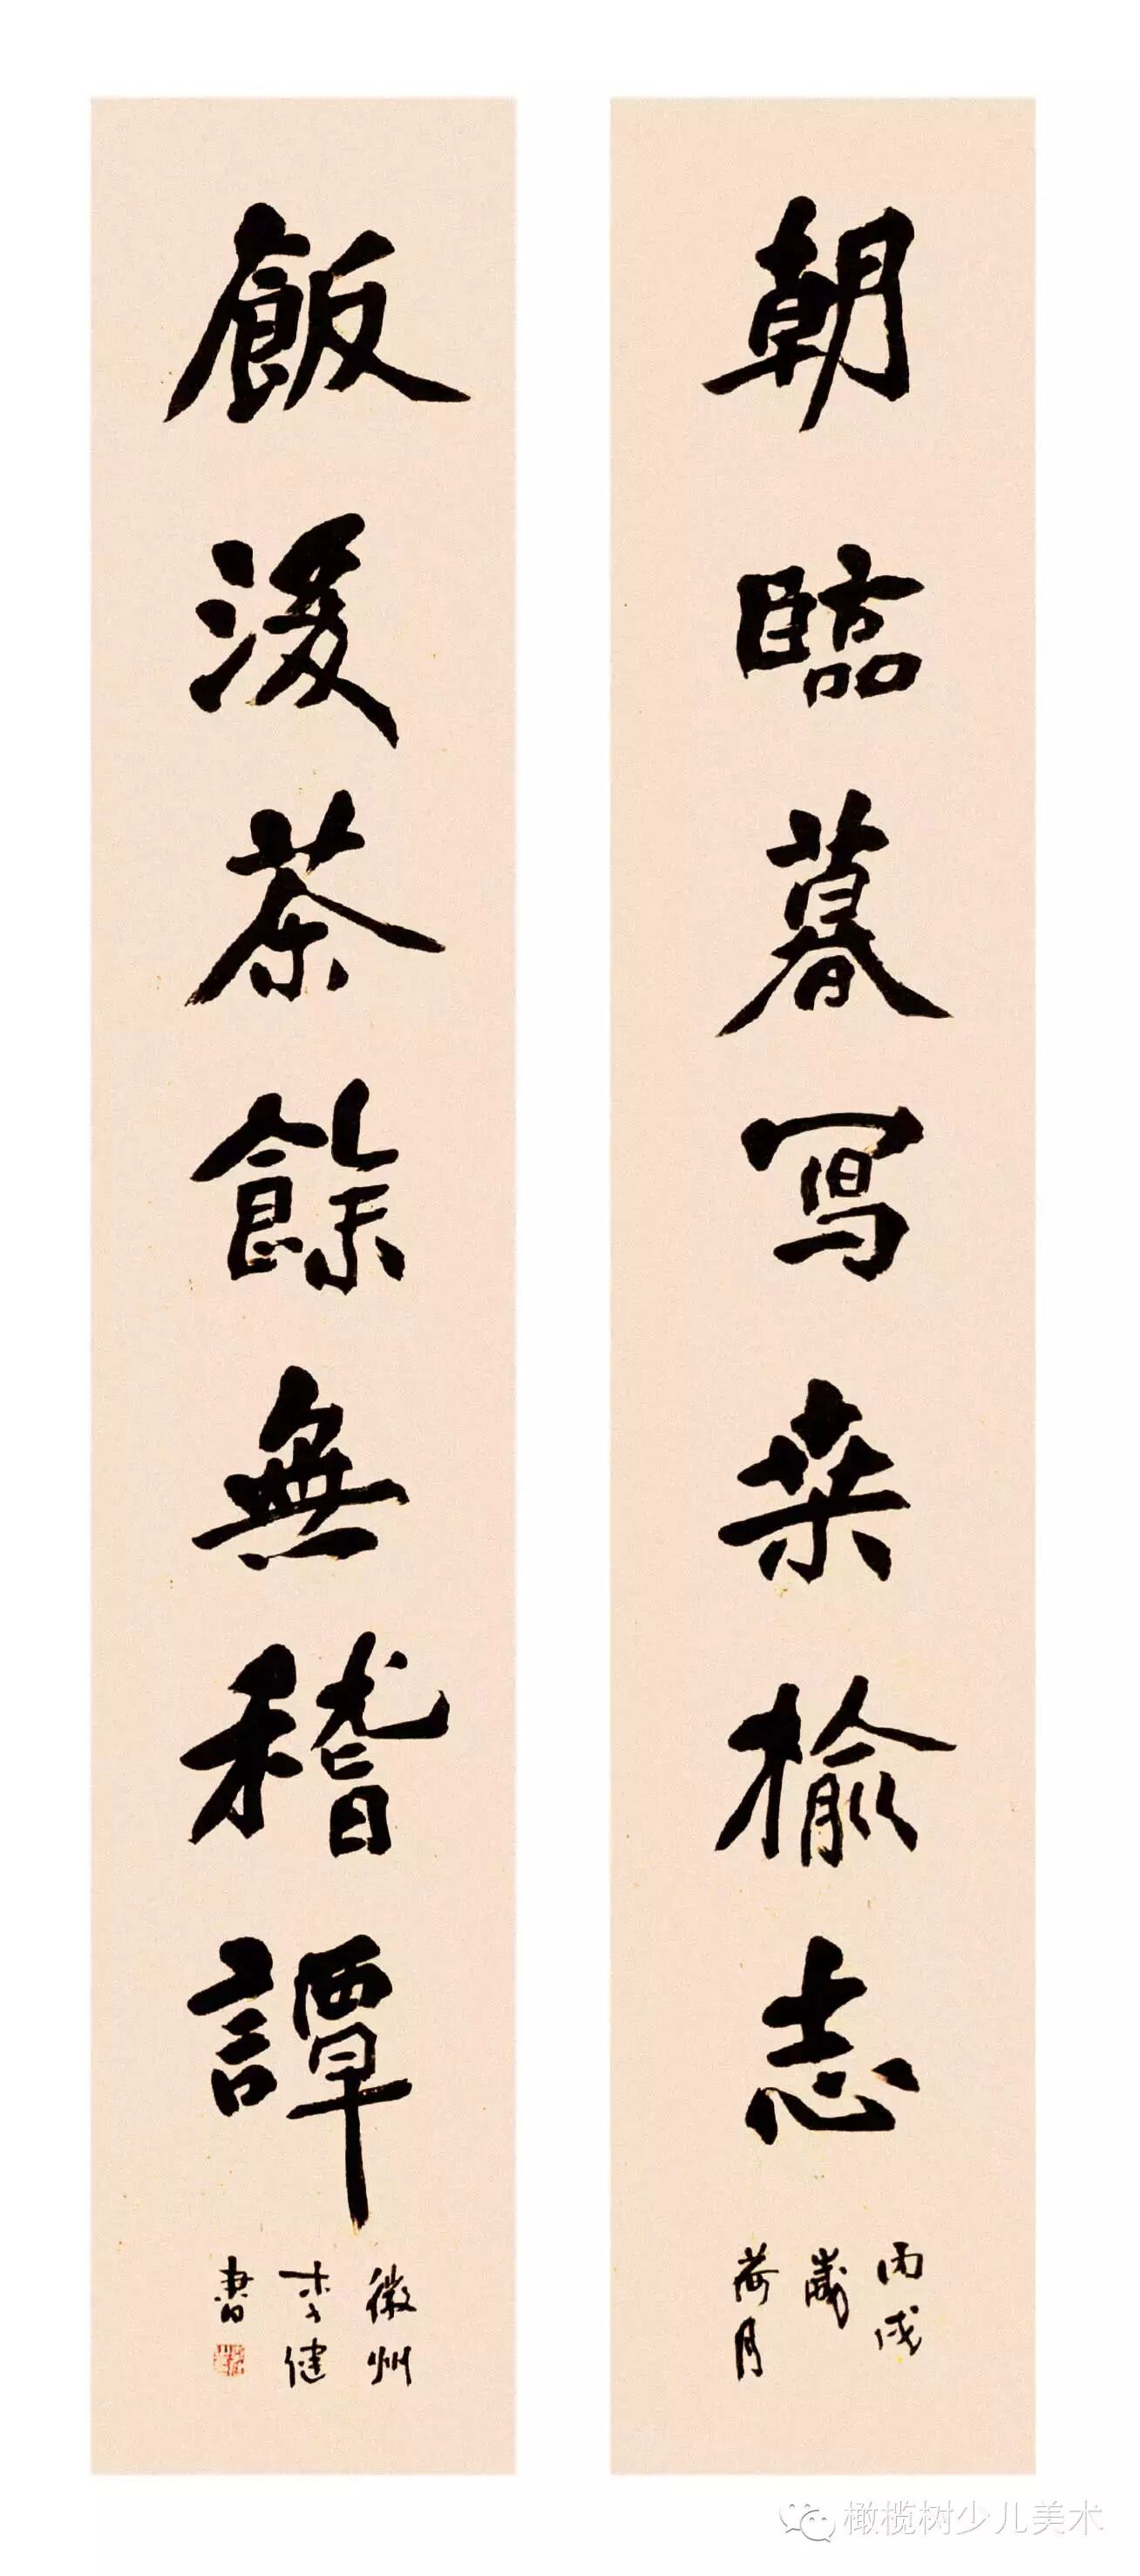 朝臨暮寫桑榆志
丙戌
歲
荷月
飯後茶餘無稽譚
徽州
李健
書
橄榄树少儿美术